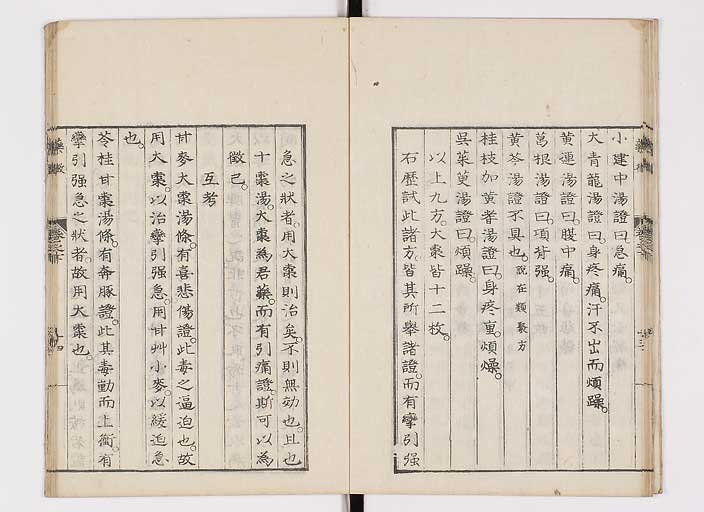 小建中湯證曰急痛。
大青龍湯證曰身疼痛。汗不出而煩躁。
黃連湯證曰腹中痛。
葛根湯證曰項背强。
黃芩湯證不具也。說在類聚方
桂枝加黃耆湯證曰身疼重。煩躁。
吳茱萸湯證曰煩躁。
以上九方。大棗皆十二枚。
右歷試此諸方。皆其所舉諸證。而有攣引强
急之狀者。用大棗則治矣。不則無効也。且也
十棗湯。大棗為君藥。而有引痛證。斯可以為
徵已。
互考
甘麥大棗湯條。有喜悲傷證。此毒之逼迫也。故
用大棗。以治攣引强急。用甘艸小麥。以緩迫急
也。
苓桂甘棗湯條。有奔豚證。此其毒動而上衝。有
攣引强急之狀者。故用大棗也。